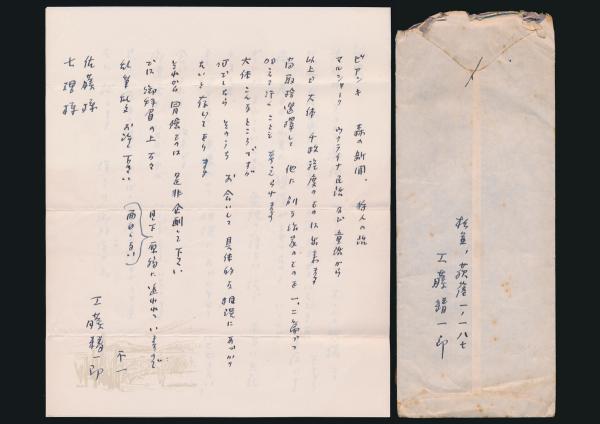 ビアンキ 森の新聞、狩人の話
マルシャーク ウクライナ民話 及び 童話から
以上で大体 千枚程度のものは出来ます
尚取捨選択して 他に別な作家のものを一、二篇づつ
加えて行くことも 考えられます
大体 こんなところですが
何でしたら そのうち お会いして 具体的な 相談に あづかり
たいと存じております
それから 冒険ものは 是非企劃して下さい
では 御検討の上 万々
乱筆乱文 お許し下さい
目下 原稿に追われています
面目ない
不一
工藤精一郎
佐藤様
七理様
杉並、荻窪一ノ一八七
工藤精一郎